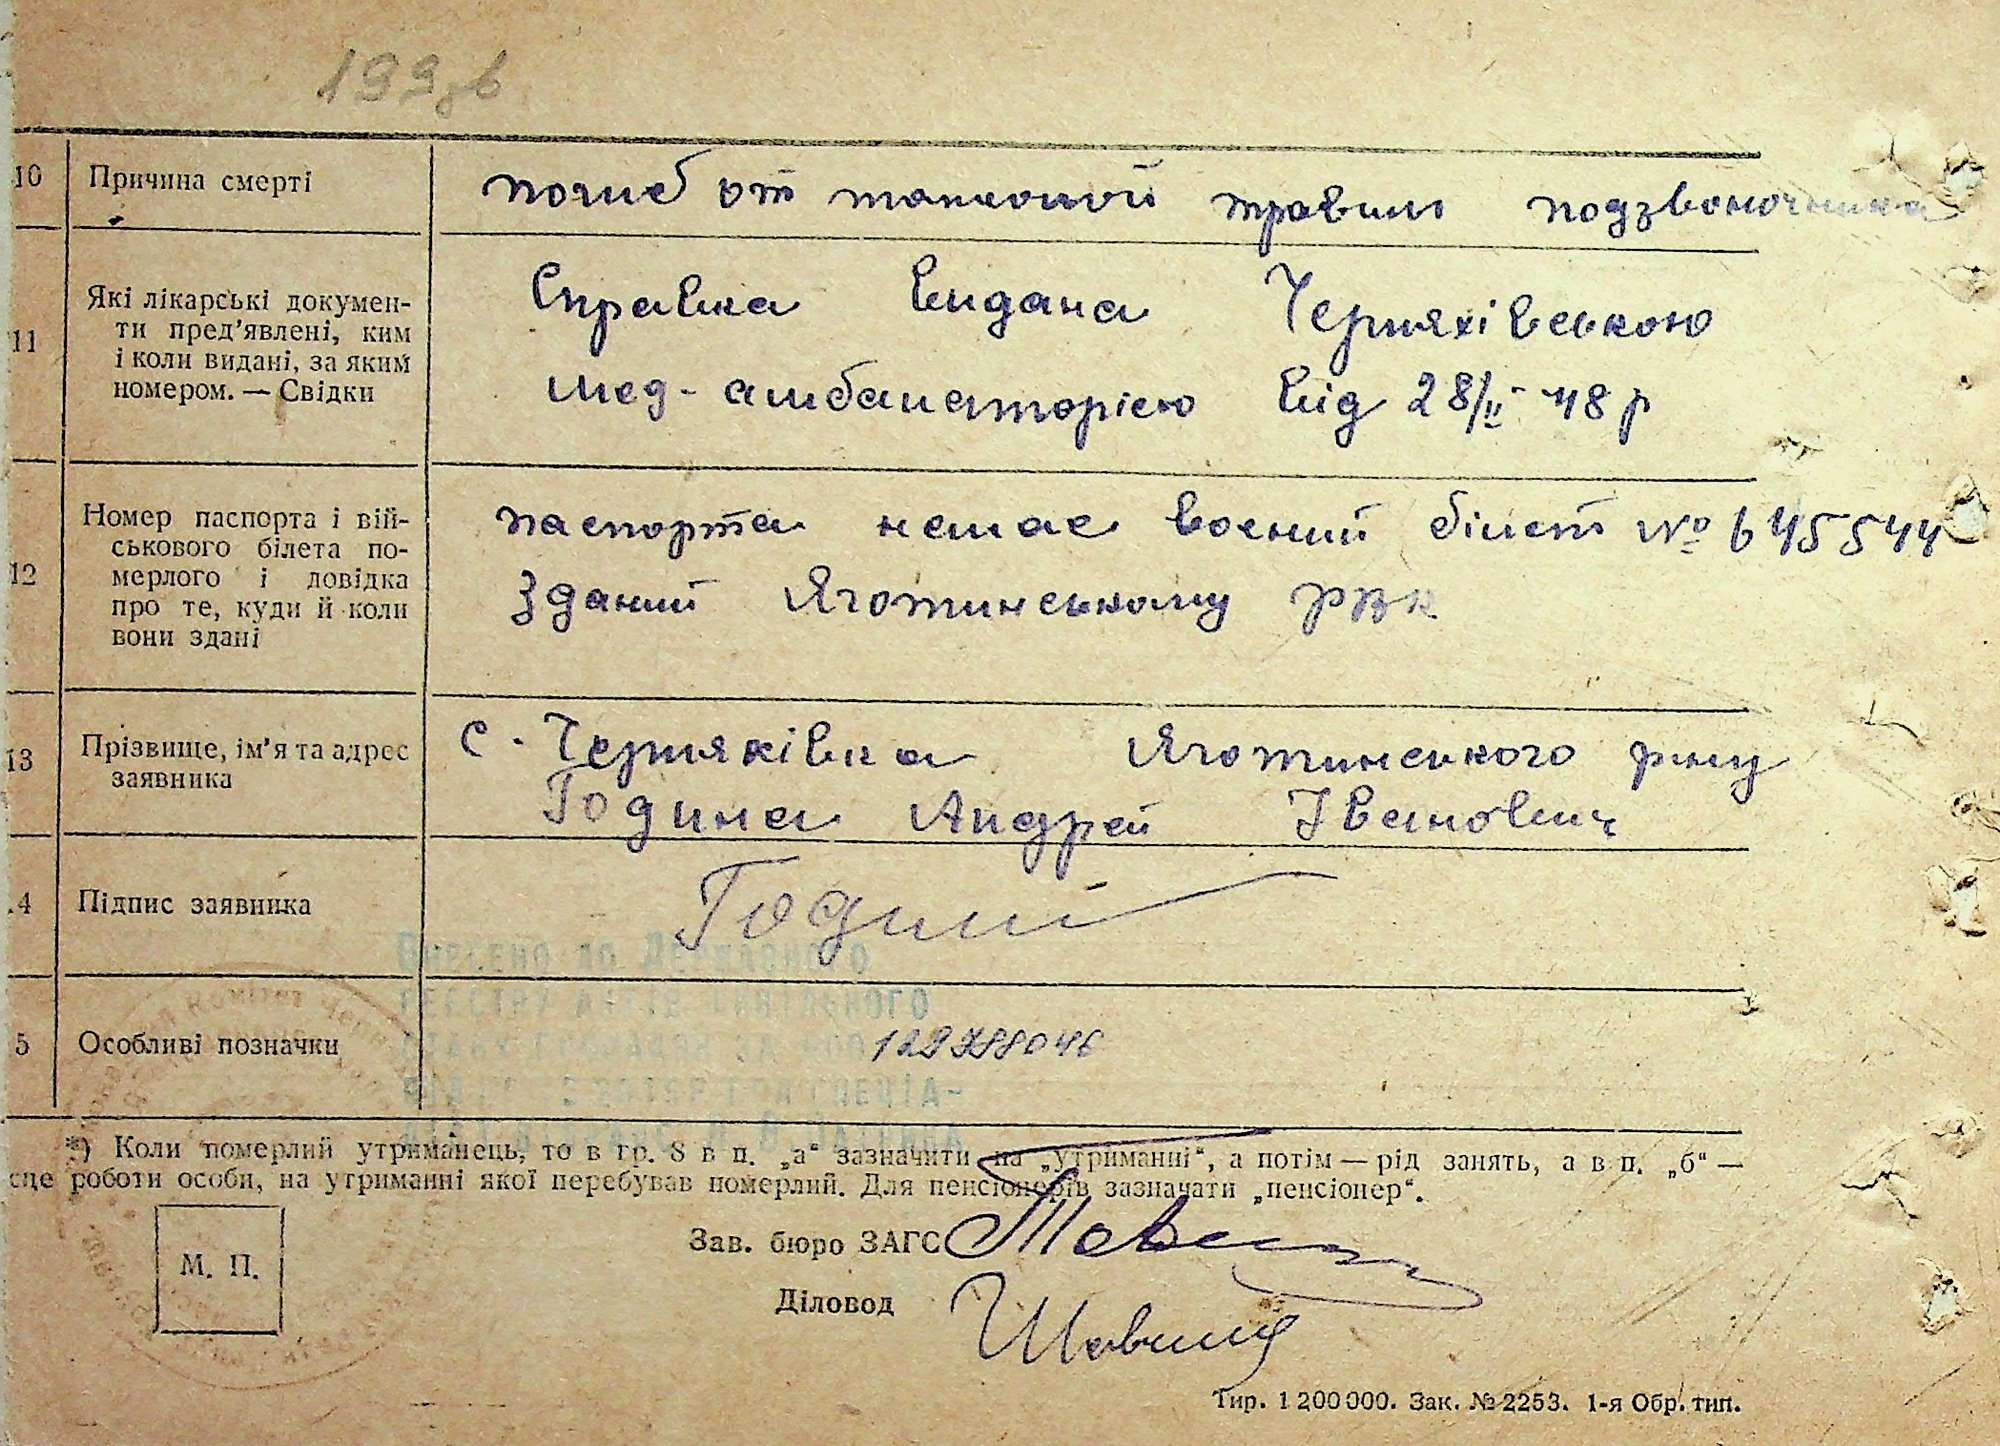 199зв
10 Причина смерті
погиб от тяжолой травми подзвоночника
11 Які лікарські докумен-
ти пред'явлені, ким
і коли видані, за яким
номером. — Свідки
Справка видана Черняхівською
мед-амбаляторією від 28/II-48 р
12 Номер паспорта і вій-
ськового білета по-
мерлого і довідка
про те, куди й коли
вони здані
паспорта немає воєний білет № 645544
Зданий Яготинському РВК
13 Прізвище, ім'я та адрес
заявника
с. Черняхівка Яготинського рну
Година Андрей Іванович
4 Підпис заявника
5 Особливі позначки
Внесено до Державного
реєстру актів цивільного
*) Коли померлий утриманець, то в гр. 8 в п. „а“ зазначити на „утриманні“, а потім — рід занять, а в п. „б“ —
сце роботи особи, на утриманні якої перебував померлий. Для пенсіонерів зазначати „пенсіонер“.
М. П.
Зав. бюро ЗАГС
Діловод
Тир. 1 200 000. Зак. № 2253. 1-я Обр. тип.